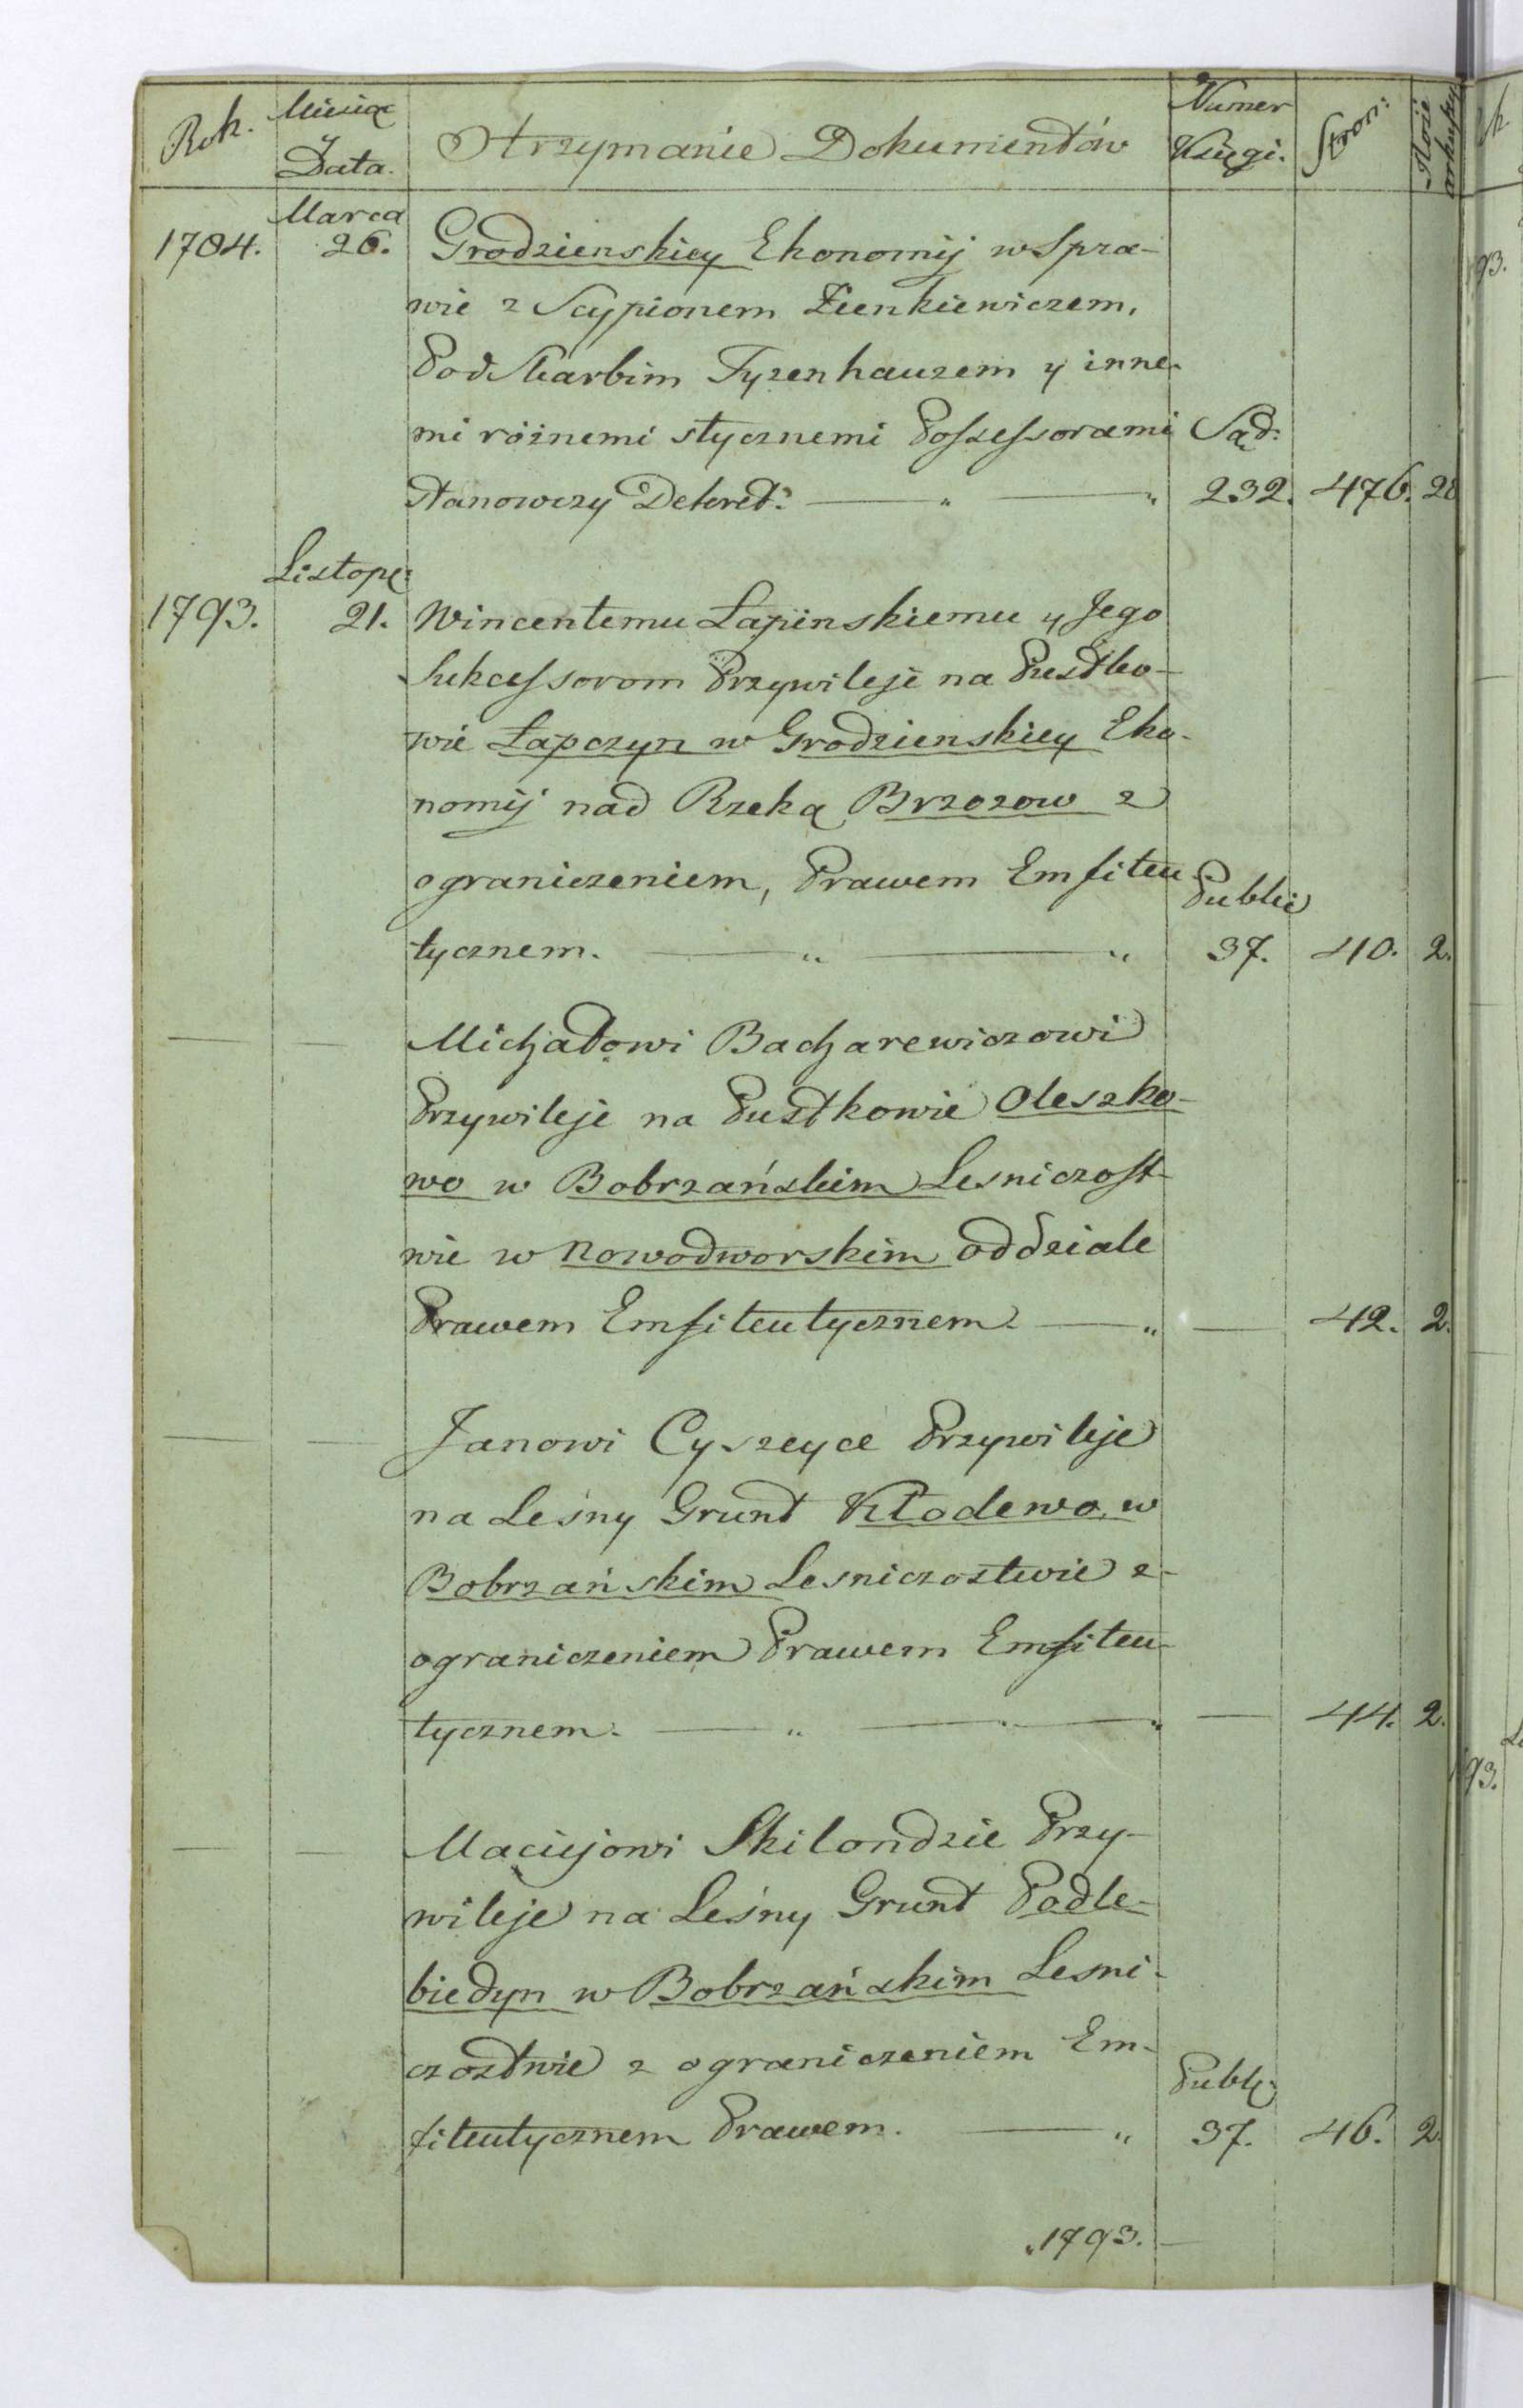 Rok. Miesiąc y Data. Otrzymanie Dokumentów Numer Księgi. Stron: Ilość arkuszy
Marca
1784. 26. Grodzienskiey Ekonomij w Spra-
wie z Scypionem Zienkiewiczem,
Podskarbim Tyzenhauzem y inne-
mi róznemi stycznemi Possessorami Sąd:
stanowczy Dekret. — " — " 232. 476. 28
Listop:
1793. 21. Wincentemu Łapinskiemu y Jego
Sukcessorom Przywileje na Pustko-
wie Łapczyn w Grodzienskiey Eko-
nomij nad Rzeką Brzozow z
ograniczeniem, Prawem Emfiteu Public
tycznem. — " — " 37. 40. 2.
— — Michałowi Bacharewiczowi
Przywileje na Pustkowie Oleszko-
wo w Bobrzańskim Lesniczost-
wie w Nowodworskim oddziale
Prawem Emfiteutycznem. — " — 42. 2.
— — Janowi Cyszeyce Przywileje
na Leśny Grunt Kłodewo w
Bobrzańskim Lesniczostwie z-
ograniczeniem Prawem Emfiteu-
tycznem. — " — " — 44. 2.
— — Maciejowi Skilondzie Przy-
wileje na Leśny Grunt Podle-
biedyn w Bobrzańskim Lesni-
czostwie z ograniczeniem Em- Publ:
fiteutycznem Prawem. — " 37. 46. 2
1793. —